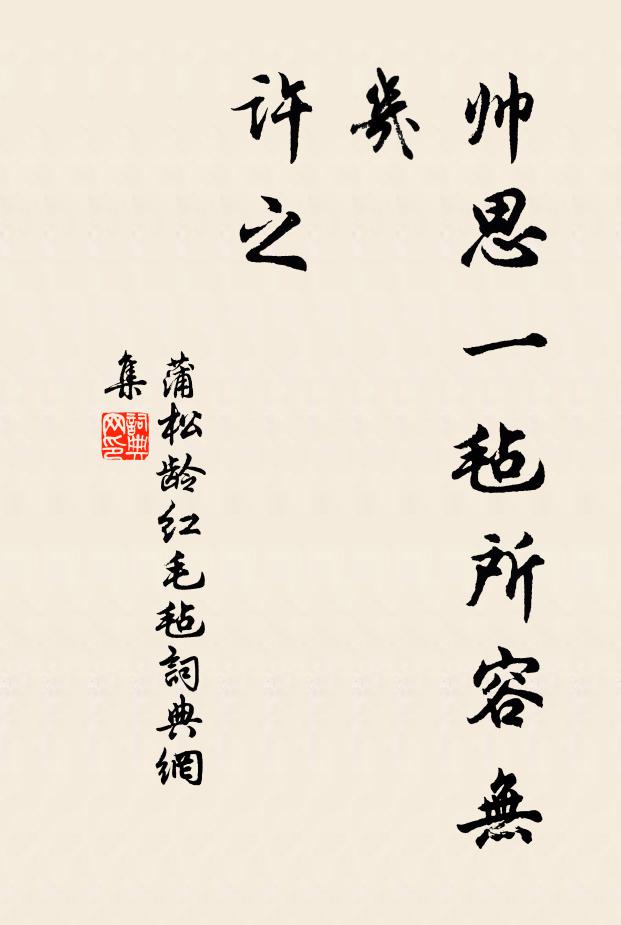 帅思一毡所容無
幾
許之
蒲松龄红毛毡詞典網
集
詞典
网印